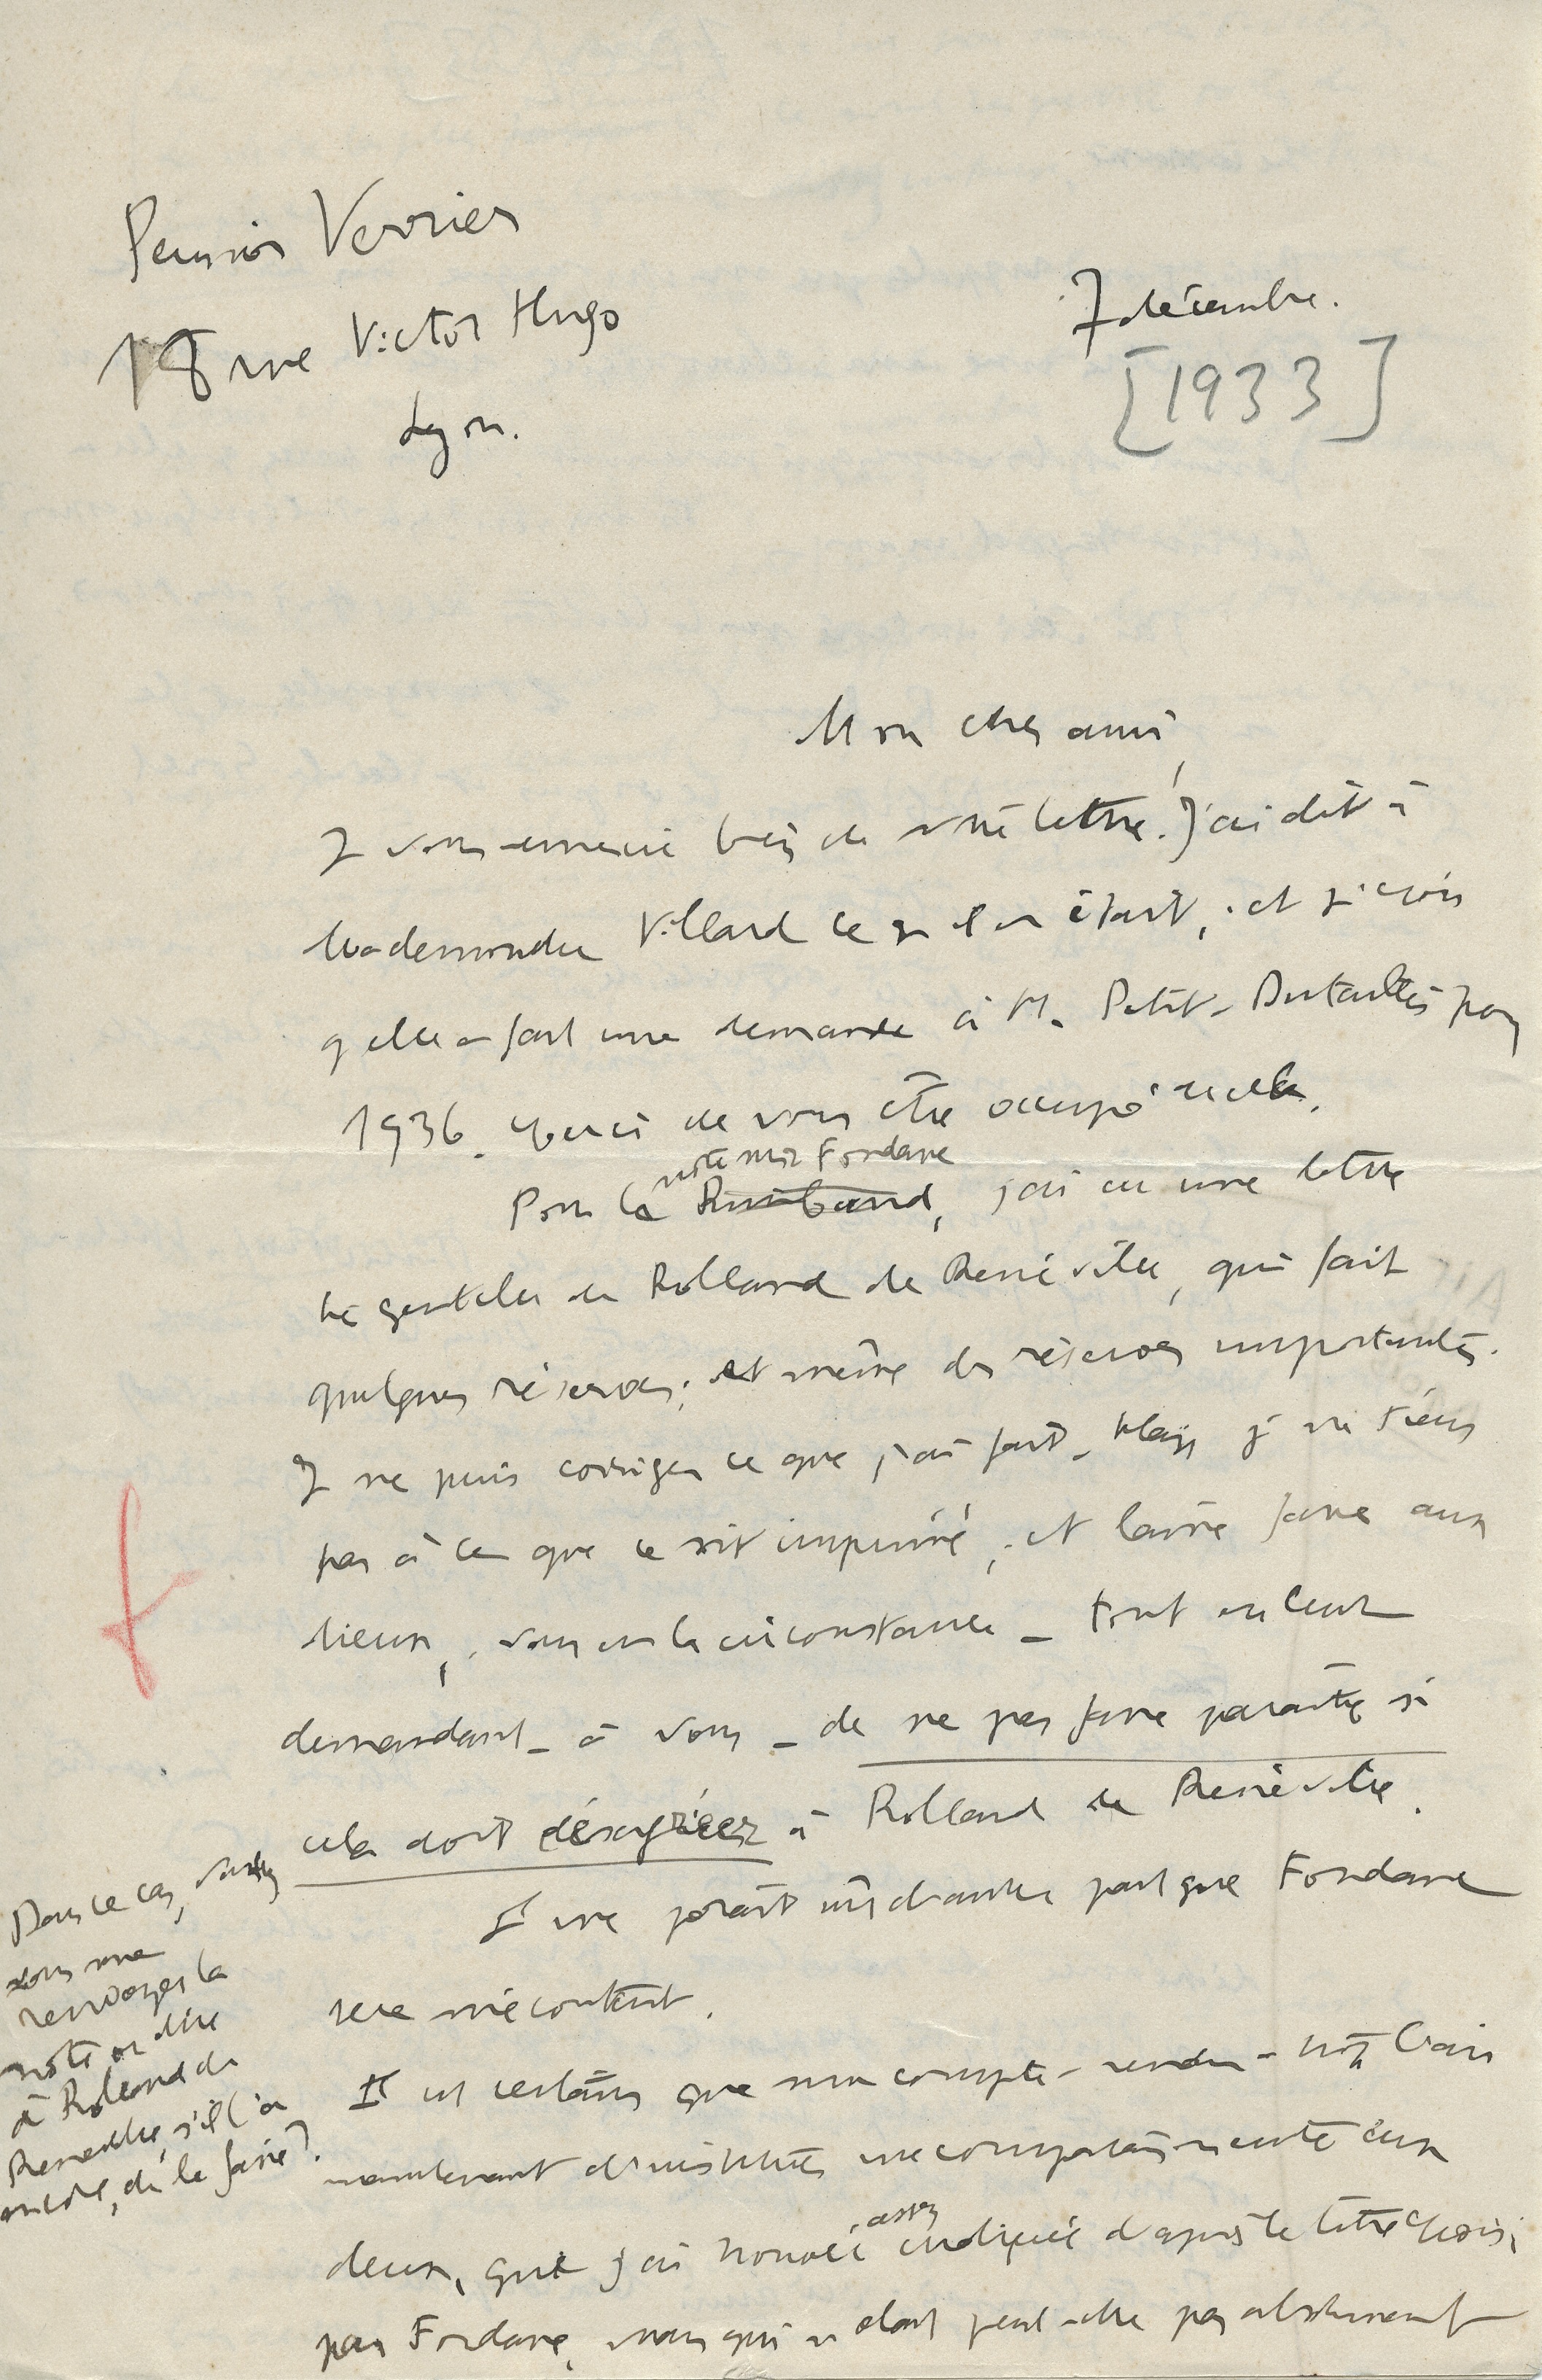 Pension Verrier
18 rue Victor Hugo
Lyon.
7 décembre.
[1933]
Mon cher ami,
Je vous remercie bien de votre lettre. J'ai dit à
Mademoiselle Villard ce qu'il en était, et je crois
qu'elle a fait une demande à M. Petit-Dutaillis pour
1936. Merci de vous être occupé de cela.
note sur Fondane
Pour la Rimbaud, j'ai eu une lettre
très gentille de Rolland de Renéville, qui fait
quelques réserves; et même des réserves importantes.
Je ne puis corriger ce que j'ai fait. Mais je ne tiens
pas à ce que ce soit imprimé, et laisse faire aux
dieux, vous en la circonstance – tout en leur
demandant – à vous – de ne pas faire paraître si
cela doit désagréer à Rolland de Renéville.
Il me paraît sûr d'autre part que Fondane
sera mécontent.
Il est certain que mon compte-rendu a trop l'air
maintenant d'instituer une comparaison entre eux
assez
deux, que j'ai trouvée indiquée d'après le titre choisi
par Fondane, mais qui n'était peut-être pas absolument
Dans ce cas, voulez
vous me
renvoyer la
note ou dire
à Rolland de
Reneville, s'il l'a
encore, de le faire?